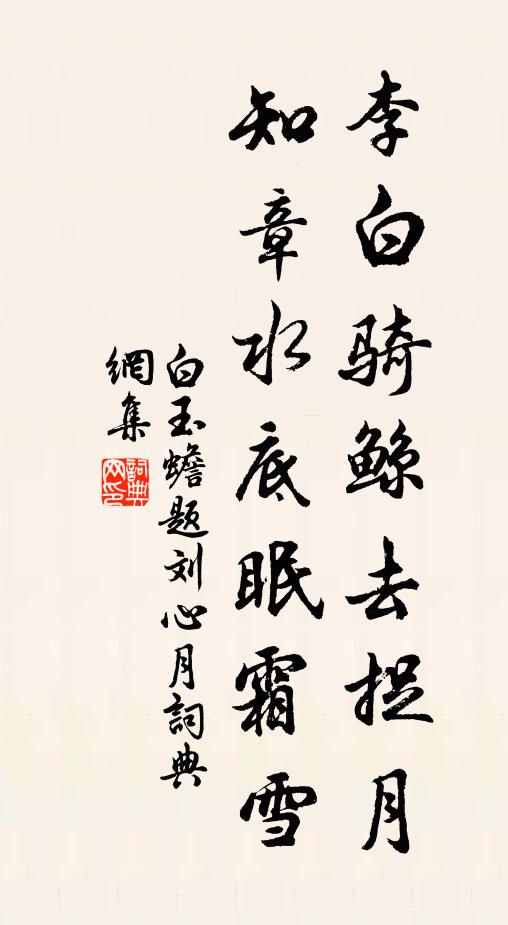 李白骑鲸去捉月
知章水底眠霜雪
白玉蟾题刘心月詞典
網集
詞典网印